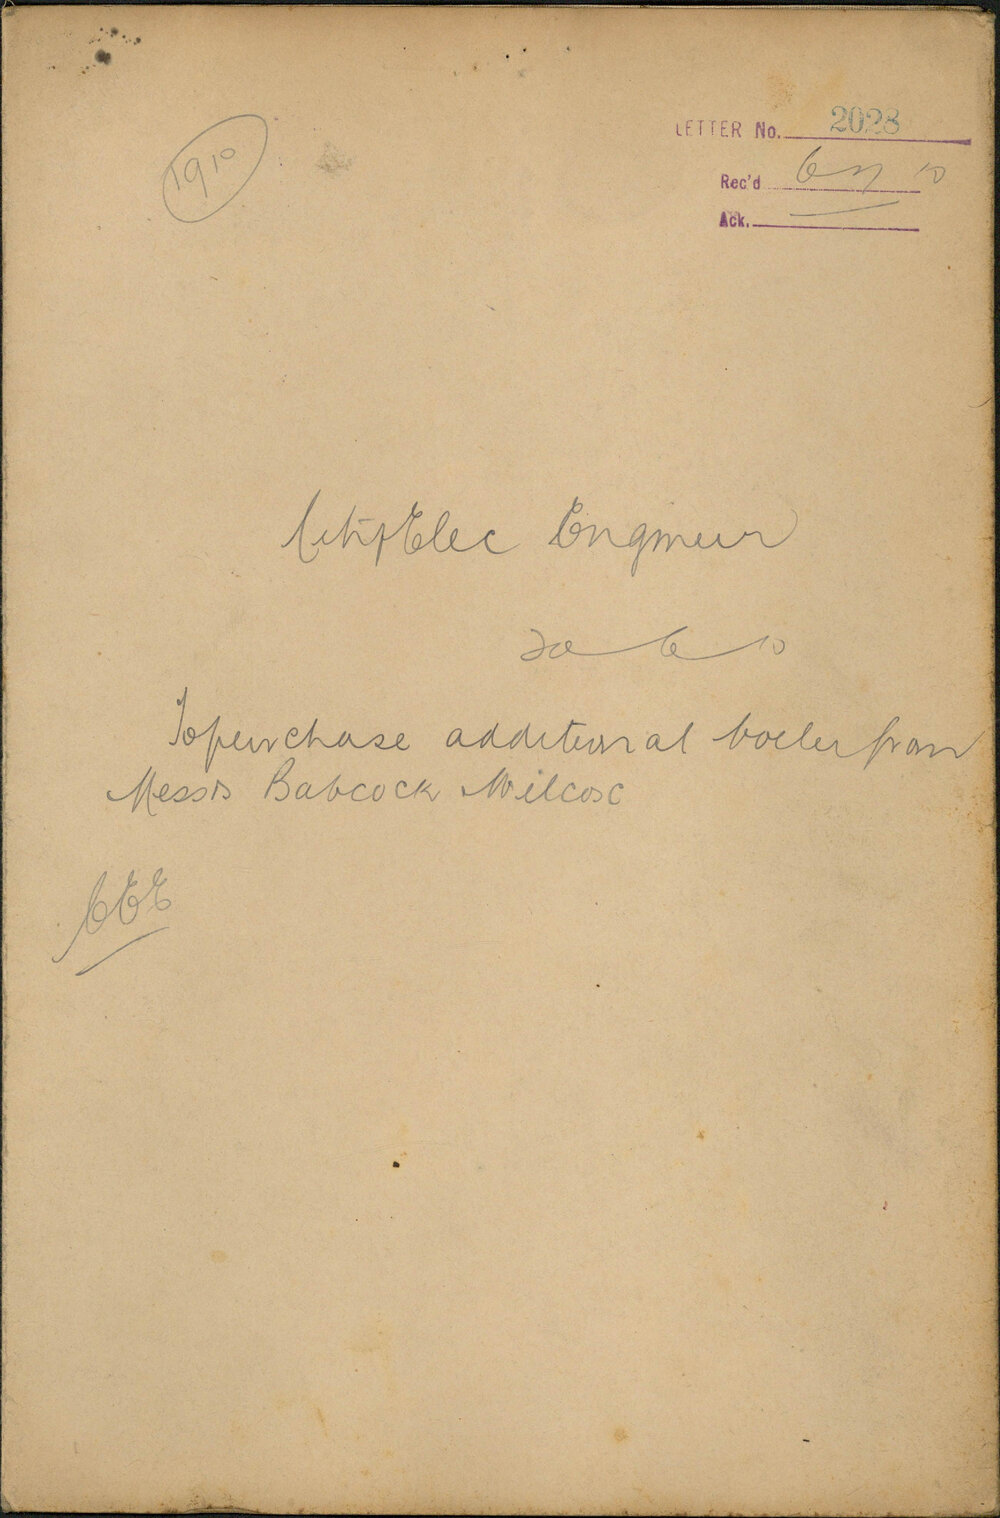 1910
LETTER No. 2028
Rec'd 6 7 10
Ack.
City Elec Engineer
30 6 10
To purchase additional boiler from
Messrs Babcock Wilcox
CEE